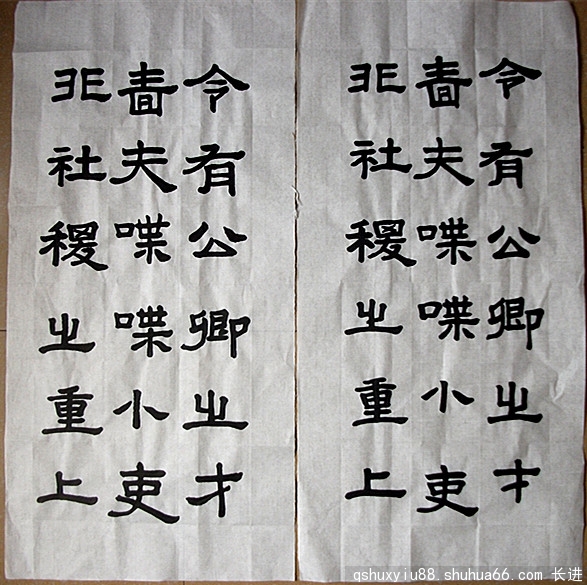 令有公卿之才
嗇夫喋喋小吏
非社稷之重上
令有公卿之才
嗇夫喋喋小吏
非社稷之重上
qshuxyiu88.shuhua66.com 长进